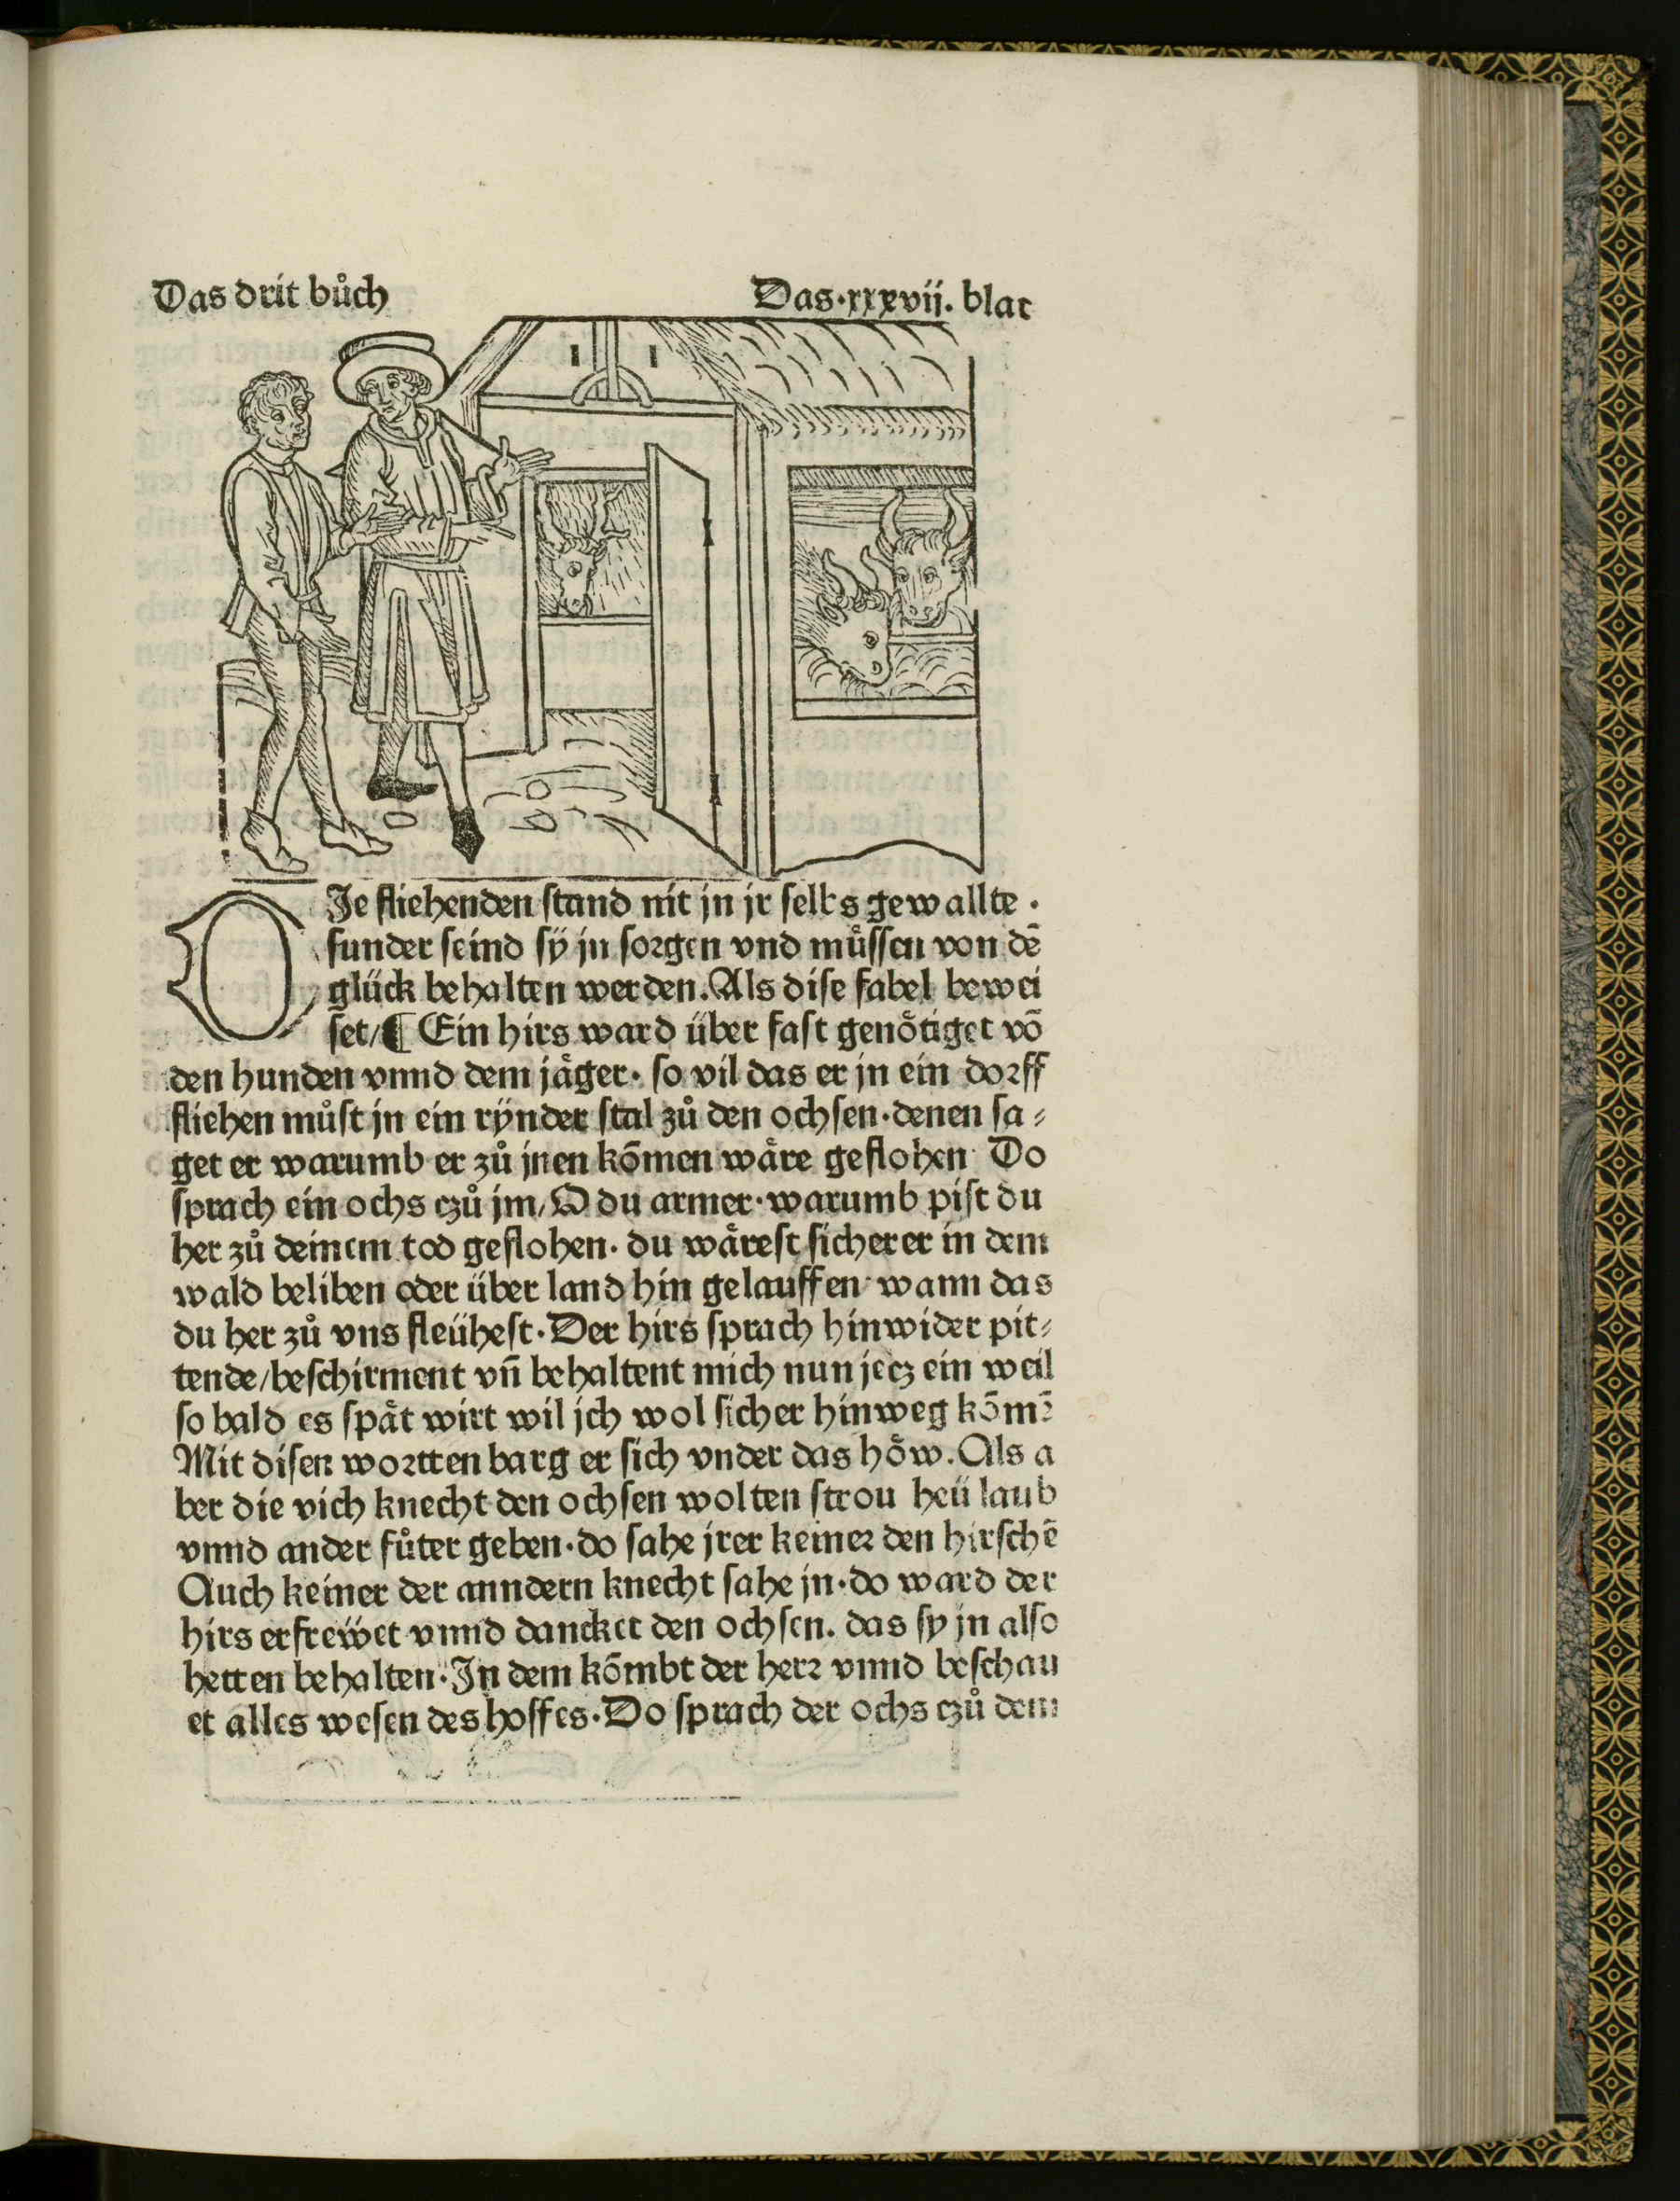 Das drit bůch Das·xxxvii. blat
DJe fliehenden ſtand nit jn jr ſelbs gewallte ·
ſunder ſeind ſÿ jn ſorgen vnd muͤſſen von dē
glück behalten werden. Als diſe fabel bewei
ſet/¶ Ein hirs ward über faſt genoͤtiget vō
den hunden vnnd dem jaͤger· ſo vil das er jn ein dorff
fliehen můſt jn ein rÿnder ſtal zů den ochſen·denen ſa⸗
get er warumb er zů jnen kōmen waͤre geflohen Do
ſprach ein ochs czů jm/O du armer·warumb piſt du
her zů deinem tod geflohen· du waͤreſt ſicherer in dem
wald beliben oder über land hin gelauffen·wann das
du her zů vns fleüheſt·Der hirs ſprach hinwider pit⸗
tende/beſchirment vn̄ behaltent mich nun jecz ein weil
ſo bald es ſpaͤt wirt wil jch wol ſicher hinweg kōmē
Mit diſen wortten barg er ſich vnder das hoͤw. Als a
ber die vich knecht den ochſen wolten ſtrou heü laub
vnnd ander fůter geben·do ſahe jrer keiner den hirſchē
Auch keiner der anndern knecht ſahe jn·do ward der
hirs erfreẅet vnnd dancket den ochſen. das ſy jn alſo
hetten behalten·Jn dem kōmbt der herr vnnd beſchau
et alles weſen des hoffes·Do ſprach der ochs czů dem